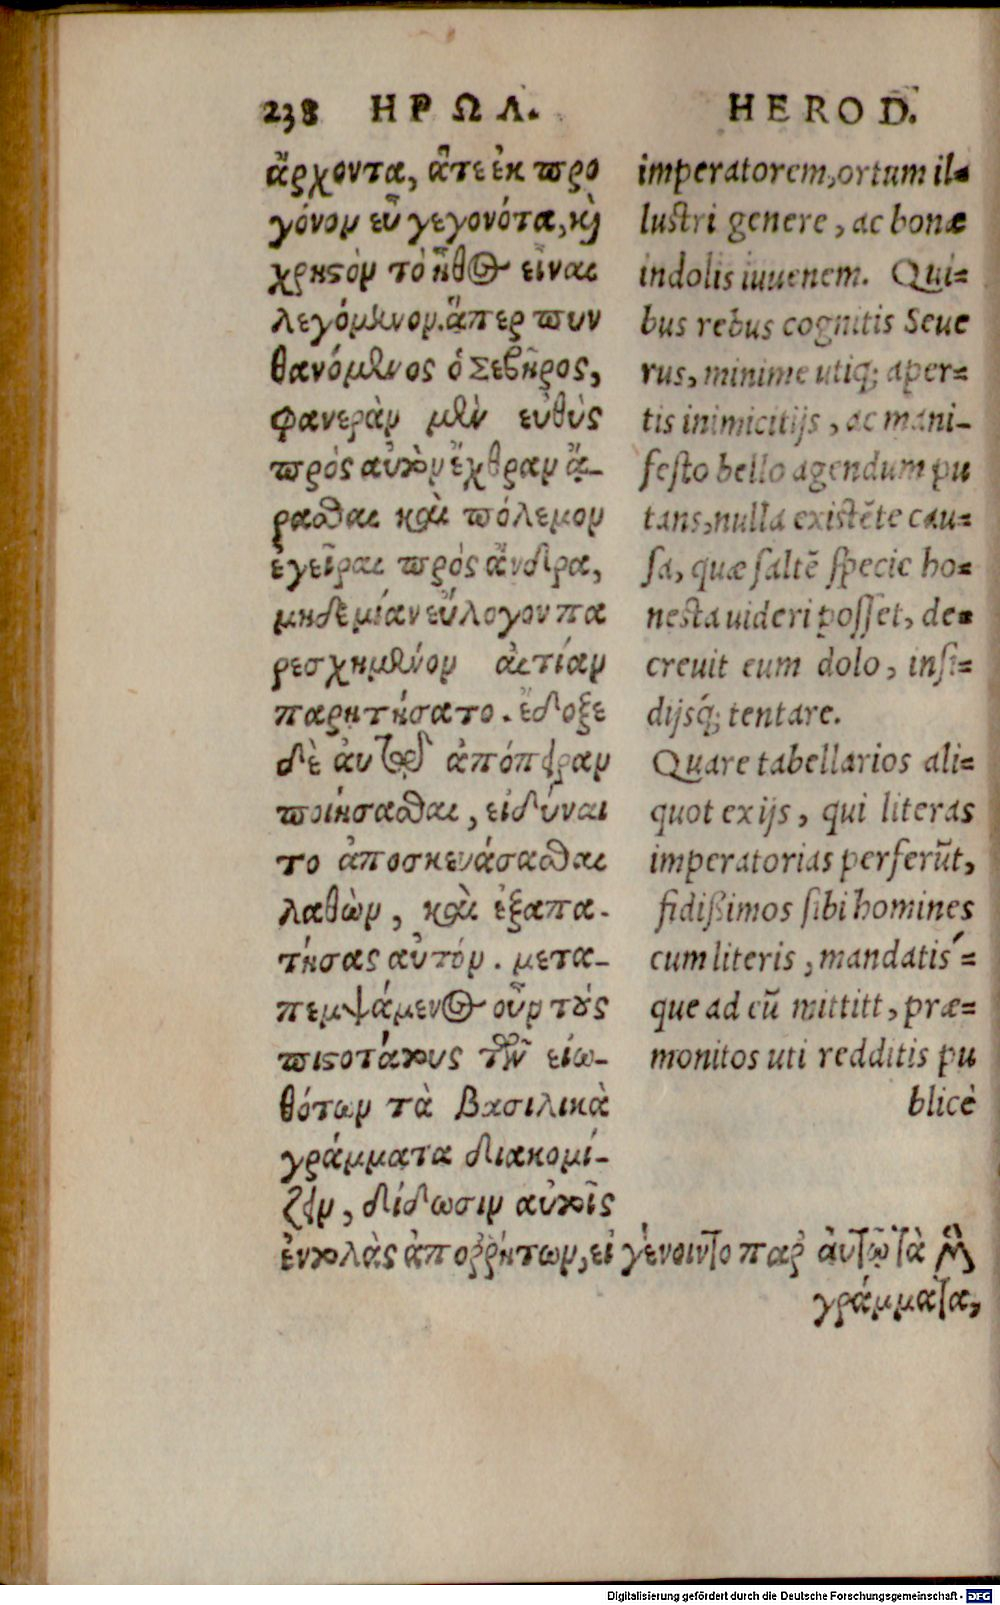 238 ΗΡΩΔ.
ἄρχοντα, ἅτε ἐκ προ
γόνων εὖ γεγονότα, καὶ
χρηστὸν τὸ ἦθος εἶναι
λεγόμενον. ἅπερ πυν
θανόμενος ὁ Σεβῆρος,
φανερὰν μὲν εὐθὺς
πρὸς αὐτὸν ἔχθραν ἄ-
ρασθαι καὶ πόλεμον
ἐγεῖραι πρὸς ἄνδρα,
μηδεμίαν εὔλογον πα
ρεσχημένον αἰτίαν
παρητήσατο. ἔδοξε
δὲ ἀυτῷ ἀπόπειραν
ποιήσασθαι, εἰ δύναι
το ἀποσκευάσασθαι
λαθὼν, καὶ ἐξαπα-
τήσας αὐτόν. μετα-
πεμψάμενος οὖν τοὺς
πιστοτάτους τῶν εἰω-
θότων τὰ βασιλικὰ
γράμματα διακομί-
ζειν, δίδωσιν αὐτοῖς
ἐντολὰς ἀποῤῥήτων, εἰ γένοιντο παρ᾽ ἀυτῷ τὰ
γράμματα,
HEROD.
imperatorem, ortum il-
lustri genere, ac bonæ
indolis iuuenem. Qui-
bus rebus cognitis Seue
rus, minime utiq; aper-
tis inimicitijs, ac mani-
festo bello agendum pu
tans, nulla existẽte cau-
sa, quæ saltẽ specie ho-
nesta uideri posset, de-
creuit eum dolo, insi-
dijsq́; tentare.
Quare tabellarios ali-
quot ex ijs, qui literas
imperatorias perferũt,
fidißimos sibi homines
cum literis, mandatis´-
que ad eũ mittitt, præ-
monitos uti redditis pu
blicè
Digitalisierung gefördert durch die Deutsche Forschungsgemeinschaft - DFG